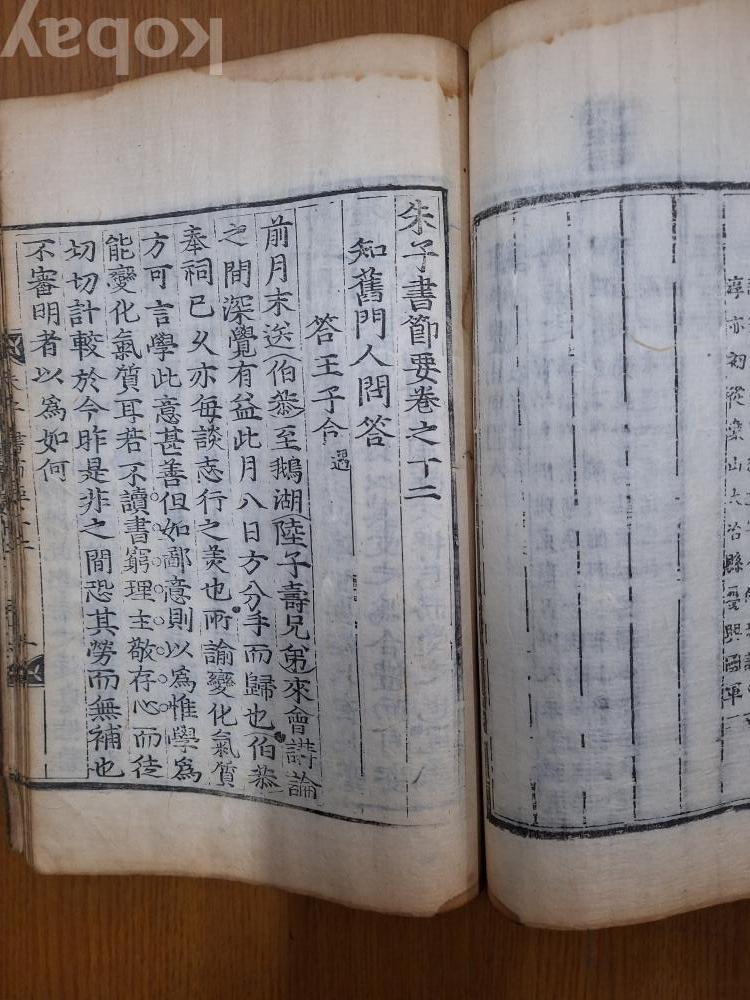 kobay
淳亦初從象山大冶縣
興國軍
朱子書節要卷之十二
知舊門人問答
答王子合遇
前月末送伯恭至鵝湖陸子壽兄弟來會講論
之間深覺有益此月八日方分手而歸也伯恭
奉祠已久亦每談志行之美也所諭變化氣質
方可言學此意甚善但如鄙意則以爲惟學爲
能變化氣質耳若不讀書窮理主敬存心而徒
切切計較於今昨是非之間恐其勞而無補也
不審明者以爲如何